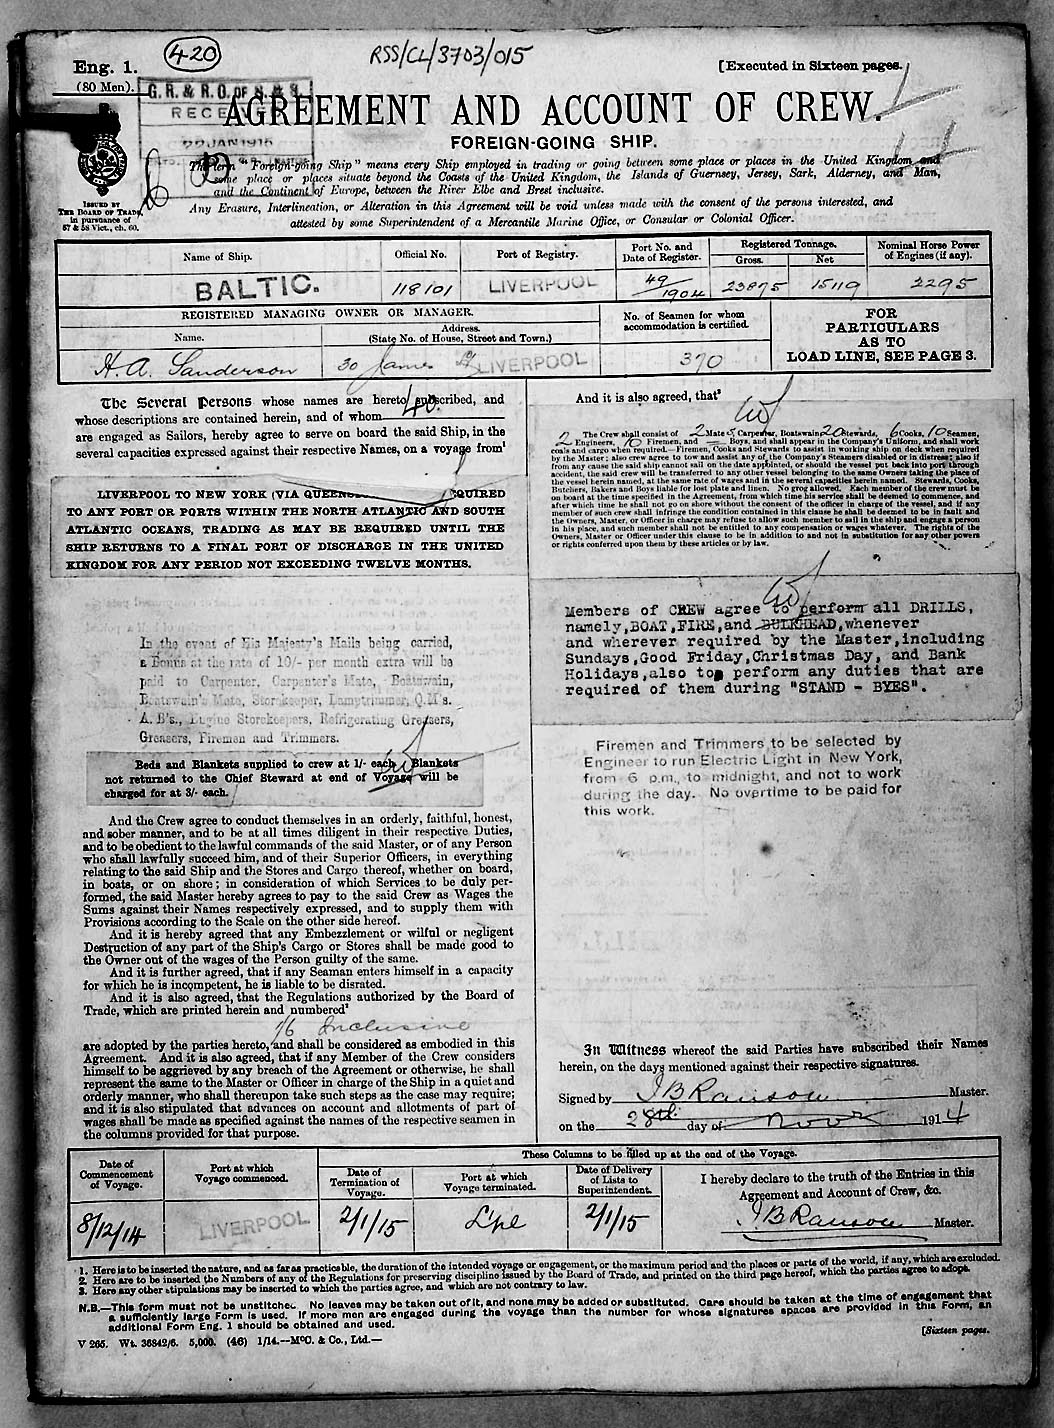 420
RSS/CL/3703/015
Eng. 1.
(80 Men).
[Executed in Sixteen pages.
G. R. & R. O. OF S. & S.
RECEIVED
22 JAN 1915
AGREEMENT AND ACCOUNT OF CREW.
FOREIGN-GOING SHIP.
ISSUED BY
THE BOARD OF TRADE,
in pursuance of
57 & 58 Vict., ch. 60.
The term "Foreign-going Ship" means every Ship employed in trading or going between some place or places in the United Kingdom and
some place or places situate beyond the Coasts of the United Kingdom, the Islands of Guernsey, Jersey, Sark, Alderney, and Man,
and the Continent of Europe, between the River Elbe and Brest inclusive.
Any Erasure, Interlineation, or Alteration in this Agreement will be void unless made with the consent of the persons interested, and
attested by some Superintendent of a Mercantile Marine Office, or Consular or Colonial Officer.
Name of Ship. Official No. Port of Registry. Port No. and Date of Register. Registered Tonnage. Gross. Net Nominal Horse Power of Engines (if any).
BALTIC. 118101 LIVERPOOL 49/1904 23875 15119 2295
REGISTERED MANAGING OWNER OR MANAGER.
Name. Address. (State No. of House, Street and Town.)
No. of Seamen for whom accommodation is certified.
H. A. Sanderson 30 James St LIVERPOOL 370
FOR
PARTICULARS
AS TO
LOAD LINE, SEE PAGE 3.
The Several Persons whose names are hereto subscribed, and
whose descriptions are contained herein, and of whom 40
are engaged as Sailors, hereby agree to serve on board the said Ship, in the
several capacities expressed against their respective Names, on a voyage from¹
LIVERPOOL TO NEW YORK (VIA
TO ANY PORT OR PORTS WITHIN THE NORTH ATLANTIC AND SOUTH
ATLANTIC OCEANS, TRADING AS MAY BE REQUIRED UNTIL THE
SHIP RETURNS TO A FINAL PORT OF DISCHARGE IN THE UNITED
KINGDOM FOR ANY PERIOD NOT EXCEEDING TWELVE MONTHS.
In the event of His Majesty's Mails being carried,
a Bonus at the rate of 10/- per month extra will be
paid to Carpenter, Carpenter's Mate, Boatswain,
Boatswain's Mate, Storekeeper, Lamptrimmer, Q.M's.
A.B's., Engine Storekeepers, Refrigerating Greasers,
Greasers, Firemen and Trimmers.
Beds and Blankets supplied to crew at 1/- each. Blankets
not returned to the Chief Steward at end of Voyage will be
charged for at 3/- each.
And the Crew agree to conduct themselves in an orderly, faithful, honest,
and sober manner, and to be at all times diligent in their respective Duties,
and to be obedient to the lawful commands of the said Master, or of any Person
who shall lawfully succeed him, and of their Superior Officers, in everything
relating to the said Ship and the Stores and Cargo thereof, whether on board,
in boats, or on shore; in consideration of which Services to be duly per-
formed, the said Master hereby agrees to pay to the said Crew as Wages the
Sums against their Names respectively expressed, and to supply them with
Provisions according to the Scale on the other side hereof.
And it is hereby agreed that any Embezzlement or wilful or negligent
Destruction of any part of the Ship's Cargo or Stores shall be made good to
the Owner out of the wages of the Person guilty of the same.
And it is further agreed, that if any Seaman enters himself in a capacity
for which he is incompetent, he is liable to be disrated.
And it is also agreed, that the Regulations authorized by the Board of
Trade, which are printed herein and numbered²
1/6 Inclusive
are adopted by the parties hereto, and shall be considered as embodied in this
Agreement. And it is also agreed, that if any Member of the Crew considers
himself to be aggrieved by any breach of the Agreement or otherwise, he shall
represent the same to the Master or Officer in charge of the Ship in a quiet and
orderly manner, who shall thereupon take such steps as the case may require;
and it is also stipulated that advances on account and allotments of part of
wages shall be made as specified against the names of the respective seamen in
the columns provided for that purpose.
And it is also agreed, that³
The Crew shall consist of 2 Mate 3 Carpenter, Boatswain 20 Stewards, 6 Cooks, 10 Seamen,
2 Engineers, 10 Firemen, and — Boys, and shall appear in the Company's Uniform, and shall work
coals and cargo when required.—Firemen, Cooks and Stewards to assist in working ship on deck when required
by the Master; also crew agree to tow and assist any of the Company's Steamers disabled or in distress; also if
from any cause the said ship cannot sail on the date appointed, or should the vessel put back into port through
accident, the said crew will be transferred to any other vessel belonging to the same Owners taking the place of
the vessel herein named, at the same rate of wages and in the several capacities herein named. Stewards, Cooks,
Butchers, Bakers and Boys liable for lost plate and linen. No grog allowed. Each member of the crew must be
on board at the time specified in the Agreement, from which time his service shall be deemed to commence, and
after which time he shall not go on shore without the consent of the officer in charge of the vessel, and if any
member of such crew shall infringe the condition contained in this clause he shall be deemed to be in fault and
the Owners, Master, or Officer in charge may refuse to allow such member to sail in the ship and engage a person
in his place, and such member shall not be entitled to any compensation or wages whatever. The rights of the
Owners, Master or Officer under this clause to be in addition to and not in substitution for any other powers
or rights conferred upon them by these articles or by law.
Members of CREW agree to perform all DRILLS,
namely, BOAT, FIRE, and BULKHEAD, whenever
and wherever required by the Master, including
Sundays, Good Friday, Christmas Day, and Bank
Holidays, also to perform any duties that are
required of them during "STAND - BYES".
Firemen and Trimmers to be selected by
Engineer to run Electric Light in New York,
from 6 p.m., to midnight, and not to work
during the day. No overtime to be paid for
this work.
In Witness whereof the said Parties have subscribed their Names
herein, on the days mentioned against their respective signatures.
Signed by J B Ranson Master.
on the 28th day of Novr 1914
These Columns to be filled up at the end of the Voyage.
Date of Commencement of Voyage. Port at which Voyage commenced. Date of Termination of Voyage. Port at which Voyage terminated. Date of Delivery of Lists to Superintendent.
I hereby declare to the truth of the Entries in this
Agreement and Account of Crew, &c.
8/12/14 LIVERPOOL 2/1/15 L'pl 2/1/15 J B Ranson Master.
1. Here is to be inserted the nature, and as far as practicable, the duration of the intended voyage or engagement, or the maximum period and the places or parts of the world, if any, which are excluded.
2. Here are to be inserted the Numbers of any of the Regulations for preserving discipline issued by the Board of Trade, and printed on the third page hereof, which the parties agree to adopt.
3. Here any other stipulations may be inserted to which the parties agree, and which are not contrary to law.
N.B.—This form must not be unstitched. No leaves may be taken out of it, and none may be added or substituted. Care should be taken at the time of engagement that
a sufficiently large Form is used. If more men are engaged during the voyage than the number for whose signatures spaces are provided in this Form, an
additional Form Eng. 1 should be obtained and used.
V 265. Wt. 36842/6. 5,000. (46) 1/14.—McC. & Co., Ltd.—
[Sixteen pages.